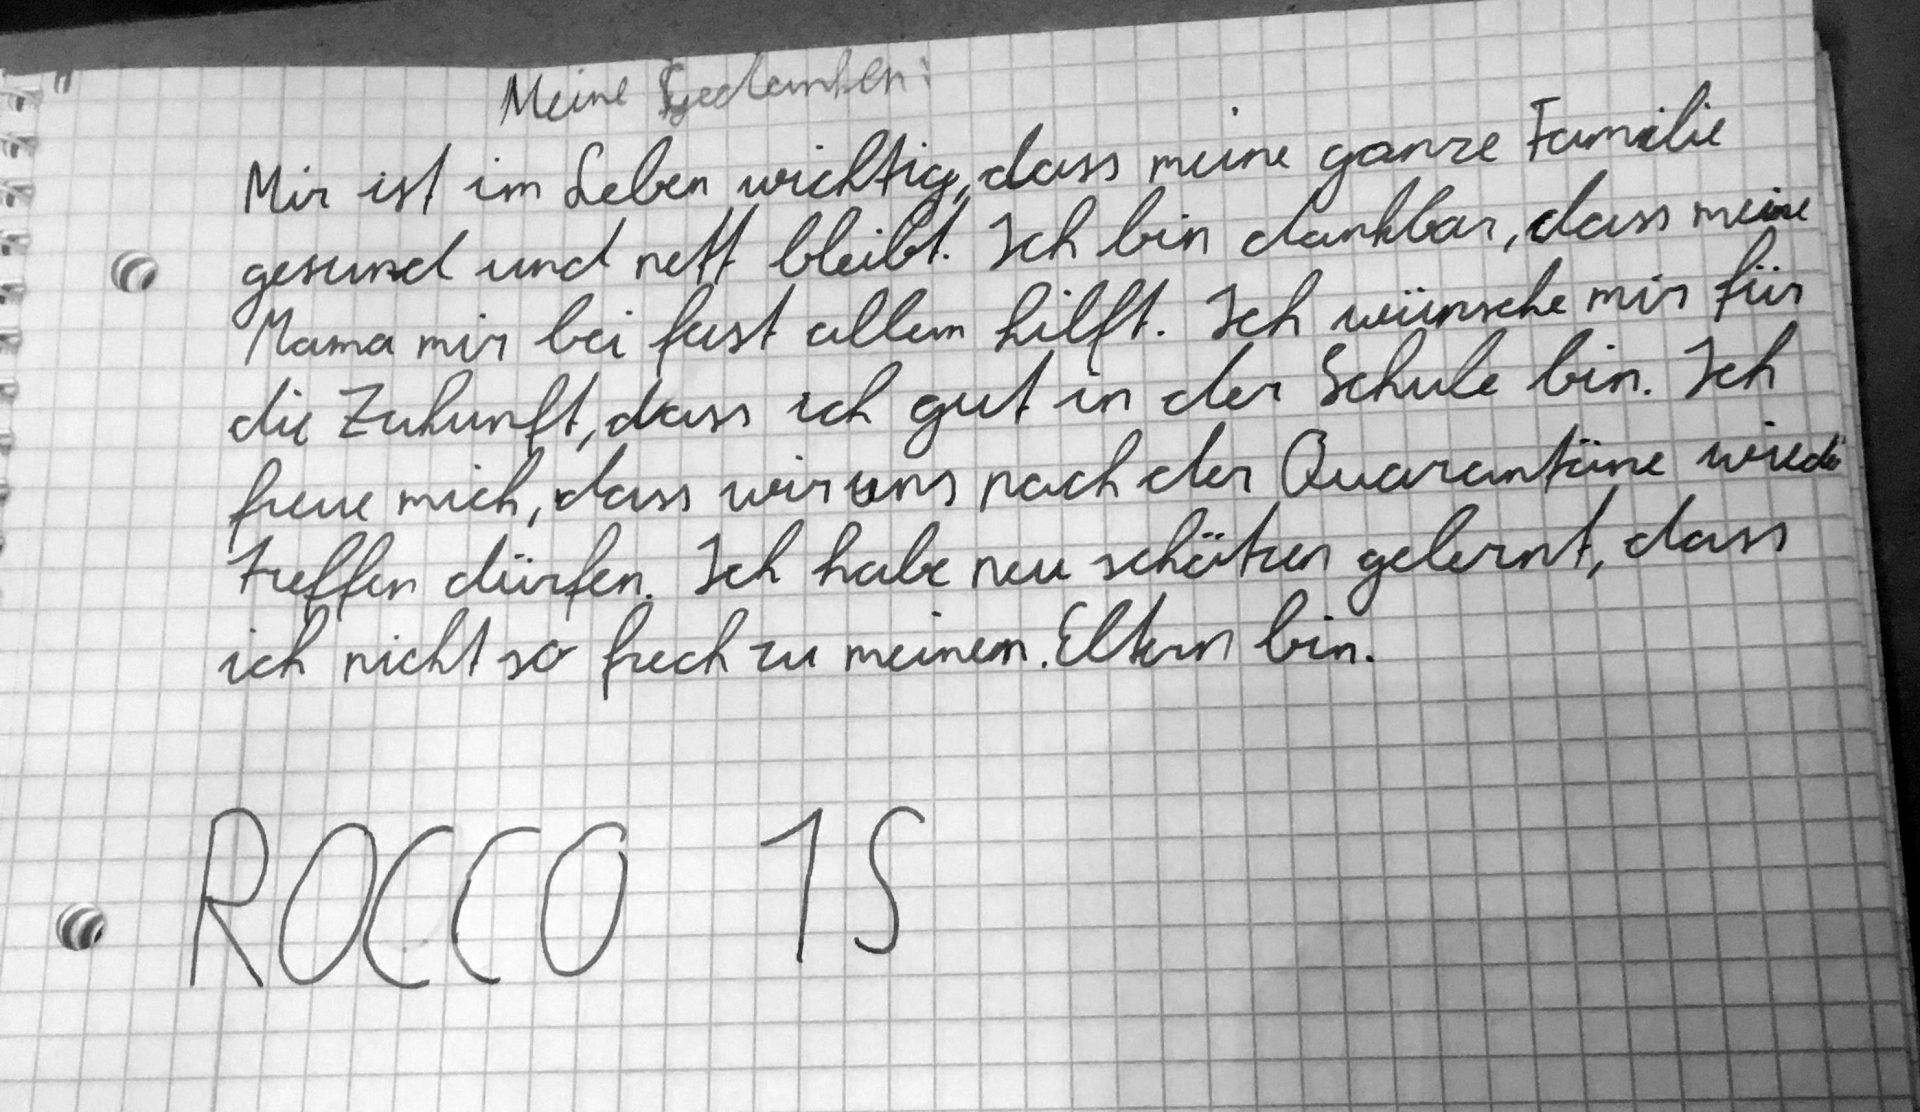 Meine Gedanken:
Mir ist im Leben wichtig, dass meine ganze Familie
gesund und nett bleibt. Ich bin dankbar, dass meine
Mama mir bei fast allem hilft. Ich wünsche mir für
die Zukunft, dass ich gut in der Schule bin. Ich
freue mich, dass wir uns nach der Quarantäne wieder
treffen dürfen. Ich habe neu schätzen gelernt, dass
ich nicht so frech zu meinen Eltern bin.
ROCCO 1S